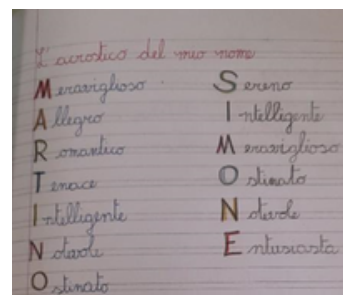 L'acrostico del mio nome
Meraviglioso
Allegro
Romantico
Tenace
Intelligente
Notevole
Ostinato
Sereno
Intelligente
Meraviglioso
Ostinato
Notevole
Entusiasta